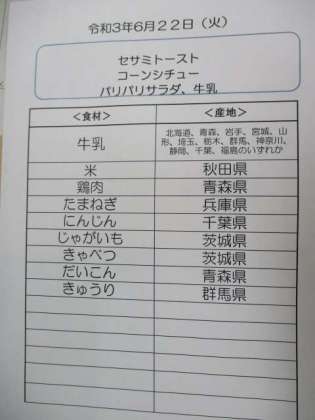 令和3年6月22日（火）
セサミトースト
コーンシチュー
パリパリサラダ、牛乳
＜食材＞ ＜産地＞
牛乳 北海道、青森、岩手、宮城、山形、埼玉、栃木、群馬、神奈川、静岡、千葉、福島のいずれか
米 秋田県
鶏肉 青森県
たまねぎ 兵庫県
にんじん 千葉県
じゃがいも 茨城県
きゃべつ 茨城県
だいこん 青森県
きゅうり 群馬県